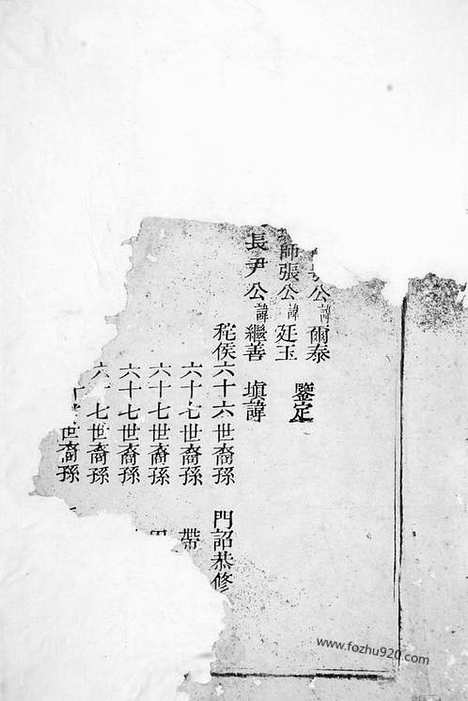 公諱爾泰
鑒定
師張公諱廷玉
長尹公諱繼善 塡諱
秺侯六十六世裔孫 門詔恭修
六十七世裔孫 帶
六十七世裔孫
六十七世裔孫
六十七世裔孫
世裔孫
www.fozhu920.com